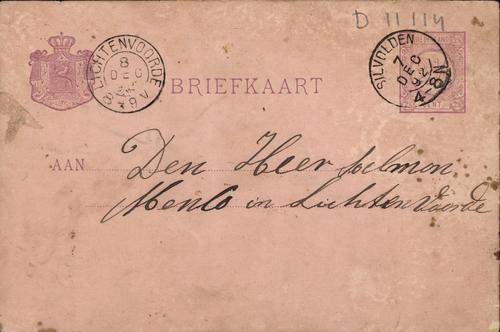 D 11 114
LICHTENVOORDE
8
DEC
8-9V
SILVOLDEN
7
DEC
92
4-8N
BRIEFKAART
CENT
AAN
Den Heer
Menco in Lichtenvoorde